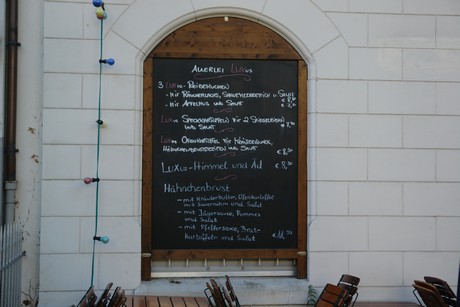 Allerlei Luxus
3 Luxus-Reibekuchen
- mit Räucherlachs, Sahnemeerrettich u. Salat
- mit Apfelmus und Salat
Luxus Speckkartoffeln für 2 Spiegeleiern
und Salat
Luxus Ofenkartoffel mit Kräuterquark,
Hähnchenbruststreifen und Salat € 8,50
Luxus-Himmel und Äd € 8,50
Hähnchenbrust
- mit Kräuterbutter, Ofenkartoffel
mit Sauerrahm und Salat
- mit Jägersauce, Pommes
und Salat
- mit Pfeffersauce, Brat-
kartoffeln und Salat